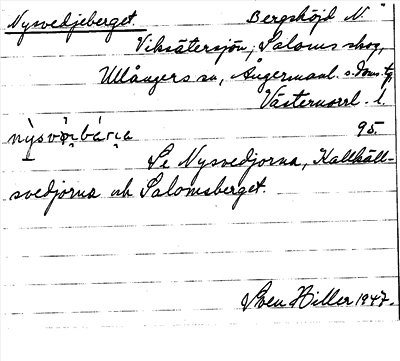 Nysvedjeberget. Bergshöjd N.
Viksätersjön, Saloms skog,
Ullångers sn, Ångermanl. s. doms.
Västernorrl. l.
95.
Se Nysvedjorna, Kallkäll-
svedjorna och Salomsberget.
Sven Hiller 1947.